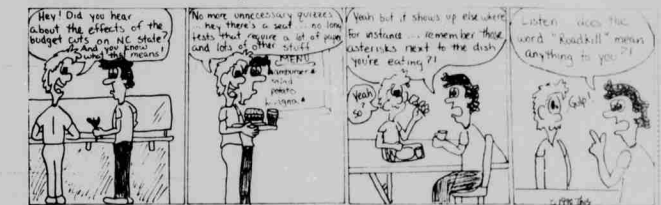 Hey! Did you hear
about the effects of the
budget cuts on NC State?
And you know
what this means!
No more unnecessary quizzes
... hey there's a seat ... no long
tests that require a lot of paper
and lots of other stuff
MENU
hamburger *
salad
potato
Yeah but it shows up else where
for instance ... remember those
asterisks next to the dish
you're eating?!
Yeah
so
Listen .. does the
word "Roadkill" mean
anything to you?!
Gulp!